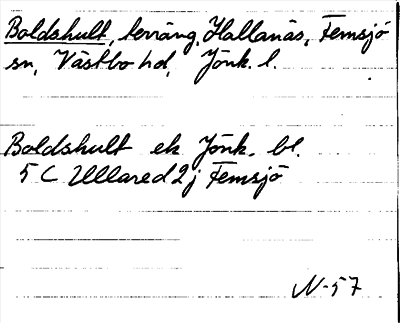 Boldshult, terräng, Hallanäs, Femsjö
sn, Västbo hd, Jönk. l.
Boldshult ek Jönk. bl.
5 C Ullared 2 j Femsjö
N-57